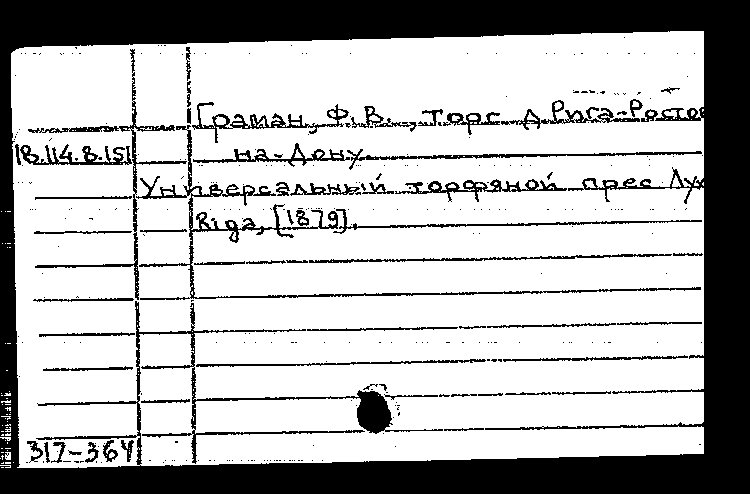 Граман, Ф.В., торг. д. Рига-Ростов
18.114.8.151 на-Дону.
Универсальный торфяной прес Лу
Riga, [1879].
317-364